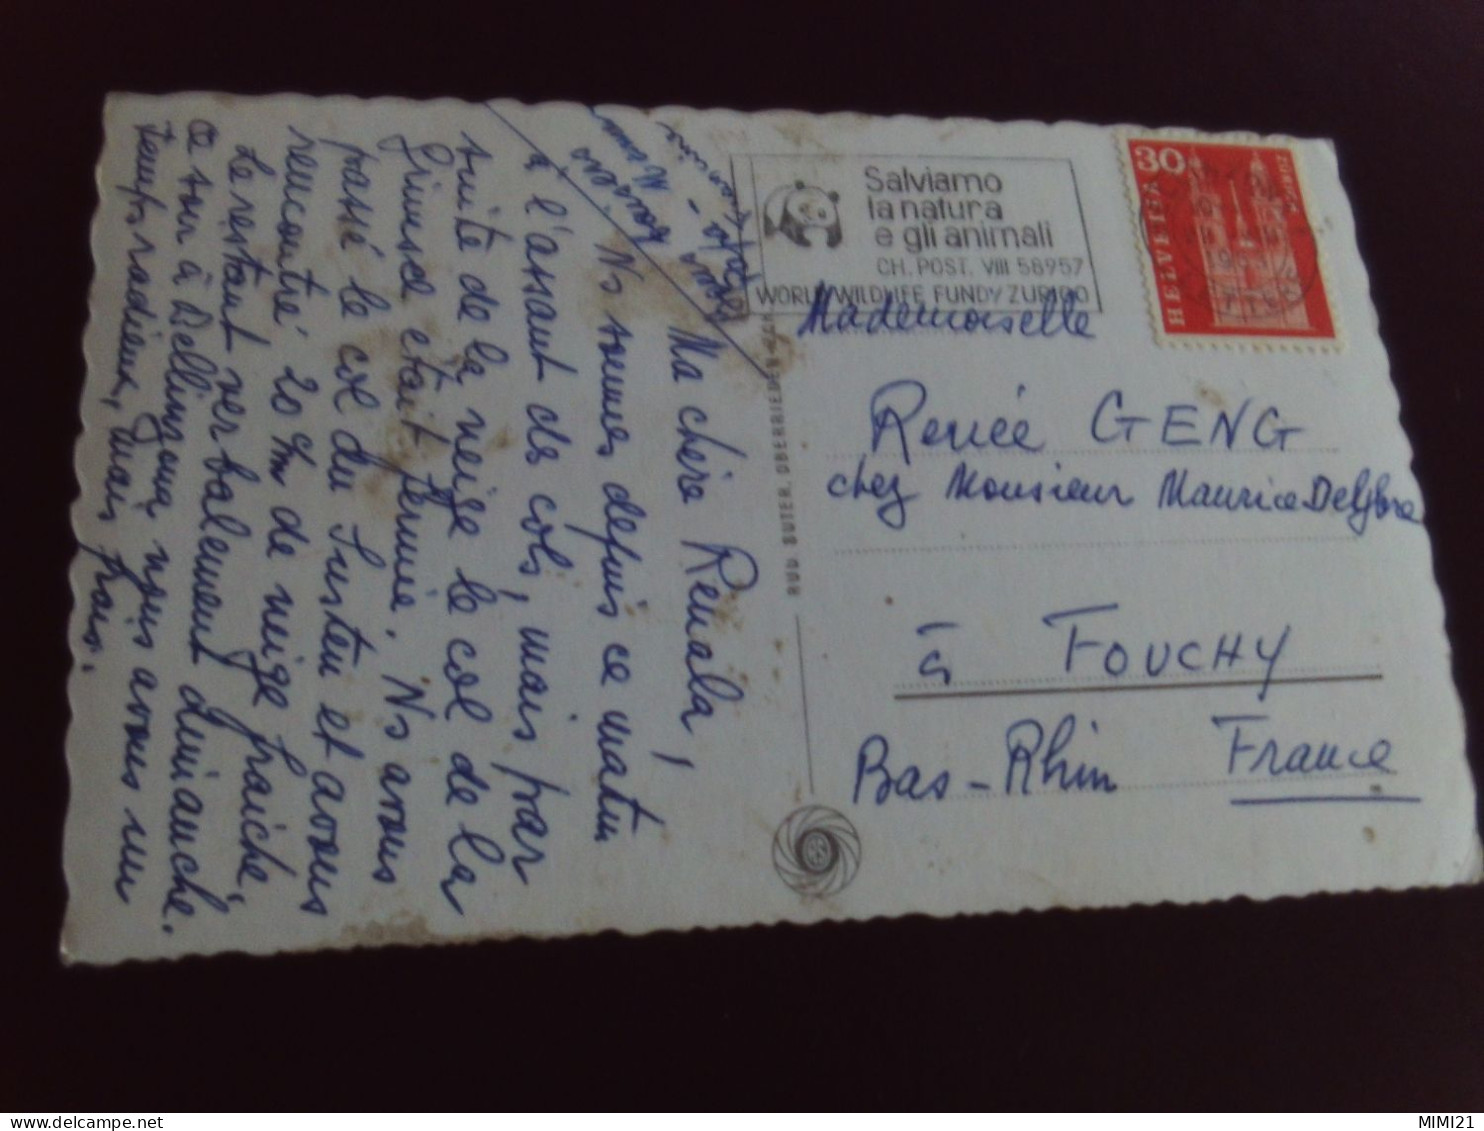 Ma chère Renala,
Ns sommes depuis ce matin
à l'assaut des cols, mais par
suite de la neige le col de la
Grimsel était fermé. Ns avons
passé le col du Susten et avons
rencontré 20 cm de neige fraîche,
Le restant verbalement dimanche.
Ce soir à Bellinzona, nous avons un
temps radieux, mais frais.
Bons baisers
RUD. SUTER, OBERRIEDEN
Salviamo
la natura
e gli animali
CH. POST. VIII 58957
WORLD WILDLIFE FUND/ZURIGO
30
HELVETIA
ZURICH
Mademoiselle
Renée GENG
chez Monsieur Maurice
à FOUCHY
Bas-Rhin France
MIMI21